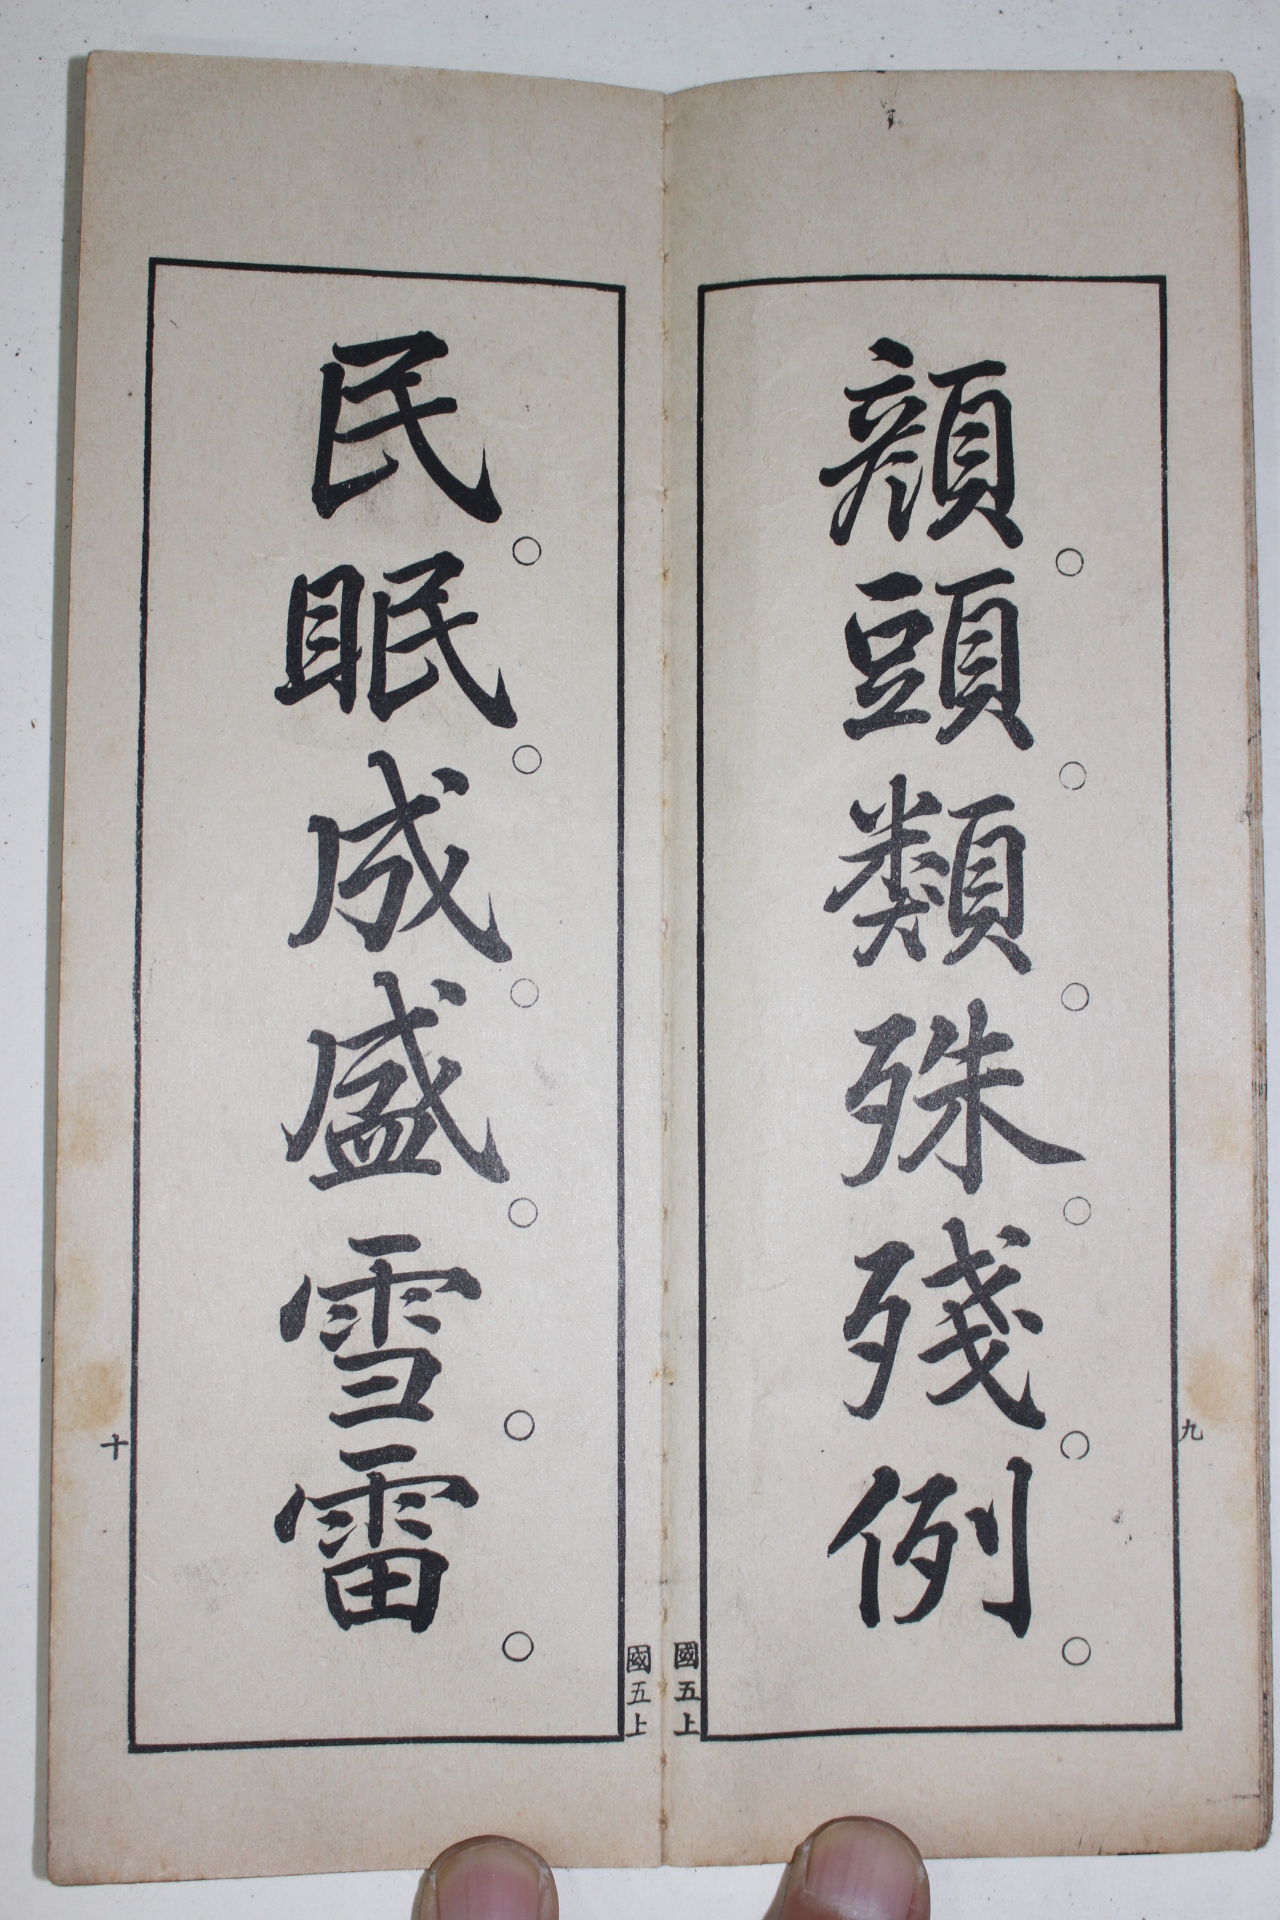 顔。頭。類。殊。残。例。
九
國五上
民。眠。成。盛。雪。雷。
十
國五上